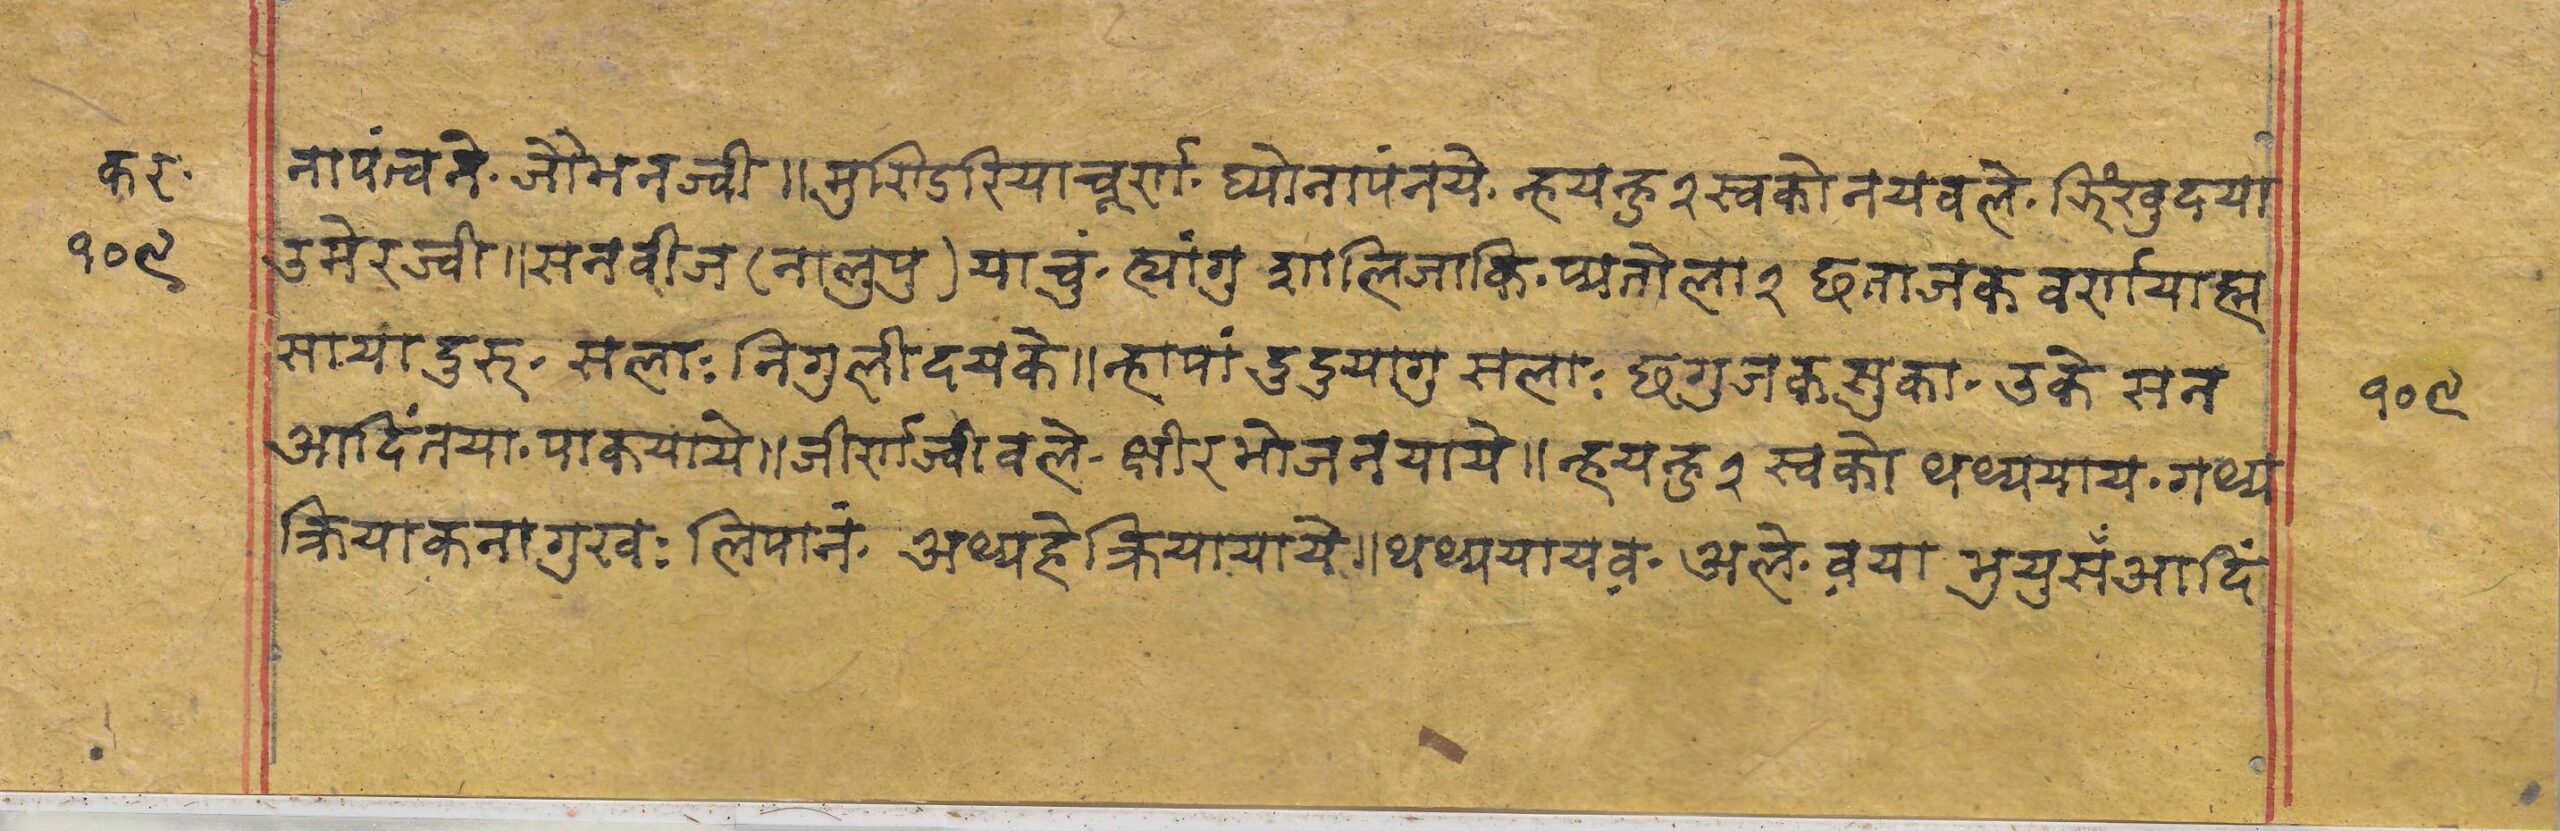 कर॰ नापंत्वने॰ जौमनज्वी॥ मुरिाडरियाचूर्रा॰ घ्योनापंनये॰ न्हयन्हु२स्वकोनयवले॰ झिंखुदया
१०९ उमेरज्वी॥ सनवीज(नालुपु)याचुं॰ ह्यांगु शालिजाकि॰ प्यतोला२ छताजक वर्रायाह्म
सायादुरु॰ सलाः निगुलीदयके॥ न्हापां दुदुयागु सलाः छगुजकमुका॰ उके सन १०९
आदिंतया॰ पाकयाये॥ जीर्राज्वीवले॰ क्षीरभोजनयाये॥ न्हयन्हु२ स्वको थथ्ययाय॰ गथ्य
क्रियाकनागुखः लिपानं॰ अथ्यहेक्रियायाये॥ थथ्ययायव॰ अले॰ वया भ्रुयुसँआदिं